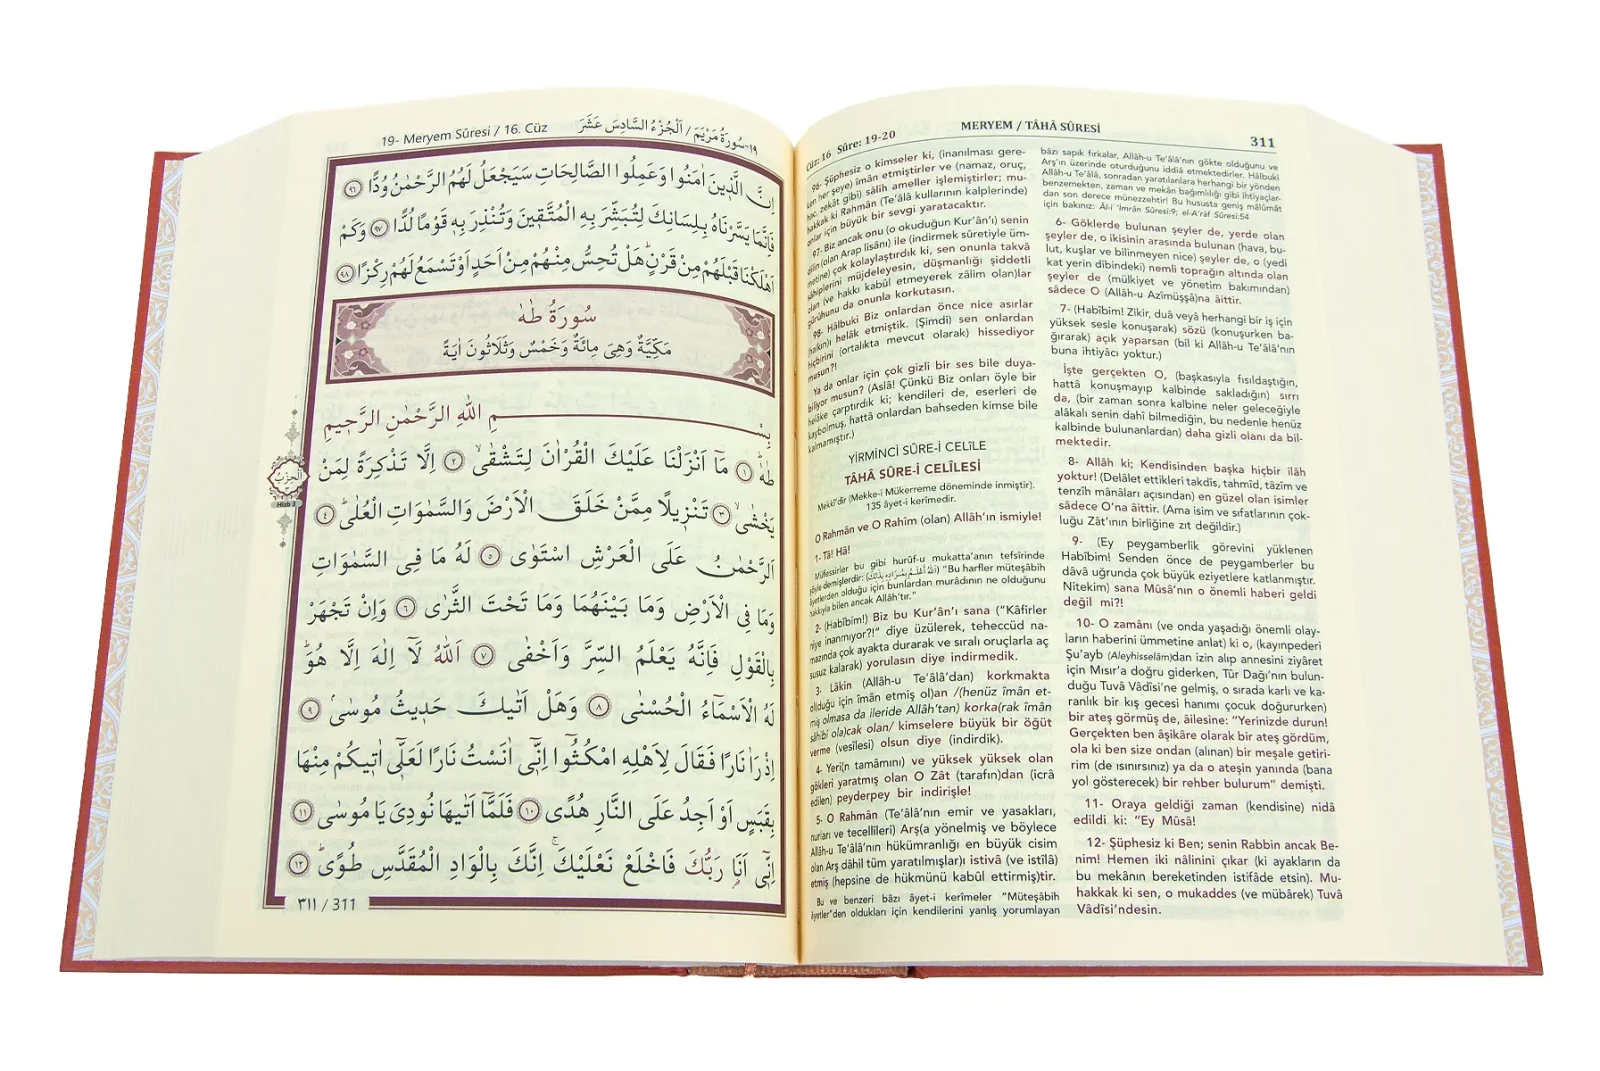 19- Meryem Sûresi / 16. Cüz ١٩-سُورَةُ مَرْيَمَ / اَلْجُزْءُ السَّادِسَ عَشَرَ
اِنَّ الَّذٖينَ اٰمَنُوا وَعَمِلُوا الصَّالِحَاتِ سَيَجْعَلُ لَهُمُ الرَّحْمٰنُ وُدًّا ٩٦
فَاِنَّمَا يَسَّرْنَاهُ بِلِسَانِكَ لِتُبَشِّرَ بِهِ الْمُتَّقٖينَ وَتُنْذِرَ بِهٖ قَوْمًا لُدًّا ٩٧ وَكَمْ
اَهْلَكْنَا قَبْلَهُمْ مِنْ قَرْنٍ هَلْ تُحِسُّ مِنْهُمْ مِنْ اَحَدٍ اَوْ تَسْمَعُ لَهُمْ رِكْزًا ٩٨
سُورَةُ طٰهٰ
مَكِّيَّةٌ وَهِيَ مِائَةٌ وَخَمْسٌ وَثَلَاثُونَ اٰيَةً
بِسْــــمِ اللّٰهِ الرَّحْمٰنِ الرَّحٖيمِ
طٰهٰ ١ مَٓا اَنْزَلْنَا عَلَيْكَ الْقُرْاٰنَ لِتَشْقٰىۙ ٢ اِلَّا تَذْكِرَةً لِمَنْ
يَخْشٰىۙ ٣ تَنْزٖيلًا مِمَّنْ خَلَقَ الْاَرْضَ وَالسَّمٰوَاتِ الْعُلٰىؕ ٤
اَلرَّحْمٰنُ عَلَى الْعَرْشِ اسْتَوٰى ٥ لَهُ مَا فِى السَّمٰوَاتِ
وَمَا فِى الْاَرْضِ وَمَا بَيْنَهُمَا وَمَا تَحْتَ الثَّرٰى ٦ وَاِنْ تَجْهَرْ
بِالْقَوْلِ فَاِنَّهُ يَعْلَمُ السِّرَّ وَاَخْفٰى ٧ اَللّٰهُ لَٓا اِلٰهَ اِلَّا هُوَؕ
لَهُ الْاَسْمَٓاءُ الْحُسْنٰى ٨ وَهَلْ اَتٰيكَ حَدٖيثُ مُوسٰىۘ ٩
اِذْ رَاٰ نَارًا فَقَالَ لِاَهْلِهِ امْكُثُٓوا اِنّٖٓى اٰنَسْتُ نَارًا لَعَلّٖٓى اٰتٖيكُمْ مِنْهَا
بِقَبَسٍ اَوْ اَجِدُ عَلَى النَّارِ هُدًى ١٠ فَلَمَّٓا اَتٰيهَا نُودِىَ يَا مُوسٰى ١١
اِنّٖٓى اَنَا رَبُّكَ فَاخْلَعْ نَعْلَيْكَۚ اِنَّكَ بِالْوَادِ الْمُقَدَّسِ طُوًىؕ ١٢
اَلْحِزْبُ
Hizb 3
٣١١ / 311
Cüz: 16 Sûre: 19-20 MERYEM / TÂHÂ SÛRESİ 311
96- Şüphesiz o kimseler ki, (inanılması gere-
ken her şeye) îmân etmiştirler ve (namaz, oruç,
hac, zekât gibi) sâlih ameller işlemiştirler; mu-
hakkak ki Rahmân (Te'âlâ kullarının kalplerinde)
onlar için büyük bir sevgi yaratacaktır.
97- Biz ancak onu (o okuduğun Kur'ân'ı) senin
dilin (olan Arap lisânı) ile (indirmek sûretiyle üm-
metine) çok kolaylaştırdık ki, sen onunla takvâ
sâhiplerini müjdeleyesin, düşmanlığı şiddetli
olan (ve hakkı kabûl etmeyerek zâlim olan)lar
gürûhunu da onunla korkutasın.
98- Hâlbuki Biz onlardan önce nice asırlar
(halkın)ı helâk etmiştik. (Şimdi) sen onlardan
hiçbirini (ortalıkta mevcut olarak) hissediyor
musun?!
Ya da onlar için çok gizli bir ses bile duya-
biliyor musun? (Aslâ! Çünkü Biz onları öyle bir
helâke çarptırdık ki; kendileri de, eserleri de
kaybolmuş, hattâ onlardan bahseden kimse bile
kalmamıştır.)
YİRMİNCİ SÛRE-İ CELÎLE
TÂHÂ SÛRE-İ CELÎLESİ
Mekkî'dir (Mekke-i Mükerreme döneminde inmiştir).
135 âyet-i kerîmedir.
O Rahmân ve O Rahîm (olan) Allâh'ın ismiyle!
1- Tâ! Hâ!
Müfessirler bu gibi hurûf-u mukatta'anın tefsîrinde
şöyle demişlerdir: (اَللّٰهُ اَعْلَمُ بِمُرَادِهٖ بِذٰلِكَ) "Bu harfler müteşâbih
âyetlerden olduğu için bunlardan murâdının ne olduğunu
hakkıyla bilen ancak Allâh'tır."
2- (Habîbim!) Biz bu Kur'ân'ı sana ("Kâfirler
niye inanmıyor?!" diye üzülerek, teheccüd na-
mazında çok ayakta durarak ve sıralı oruçlarla aç
susuz kalarak) yorulasın diye indirmedik.
3- Lâkin (Allâh-u Te'âlâ'dan) korkmakta
ol(duğu için îmân etmiş ol)an /(henüz îmân et-
miş olmasa da ileride Allâh'tan) korka(rak îmân
sâhibi ola)cak olan/ kimselere büyük bir öğüt
verme (vesîlesi) olsun diye (indirdik).
4- Yeri(n tamâmını) ve yüksek yüksek olan
gökleri yaratmış olan O Zât (tarafın)dan (icrâ
edilen) peyderpey bir indirişle!
5- O Rahmân (Te'âlâ'nın emir ve yasakları,
nurları ve tecellîleri) Arş(a yönelmiş ve böylece
Allâh-u Te'âlâ'nın hükümranlığı en büyük cisim
olan Arş dâhil tüm yaratılmışlar)ı istivâ (ve istîlâ)
etmiş (hepsine de hükmünü kabûl ettirmiş)tir.
Bu ve benzeri bâzı âyet-i kerîmeler "Müteşâbih
âyetler"den oldukları için kendilerini yanlış yorumlayan
bâzı sapık fırkalar, Allâh-u Te'âlâ'nın gökte olduğunu ve
Arş'ın üzerinde oturduğunu iddiâ etmektedirler. Hâlbuki
Allâh-u Te'âlâ, sonradan yaratılanlara herhangi bir yönden
benzemekten, zaman ve mekân bağımlılığı gibi ihtiyaçlar-
dan son derece münezzehtir! Bu hususta geniş mâlûmât
için bakınız: Âl-i 'İmrân Sûresi:9; el-A'râf Sûresi:54
6- Göklerde bulunan şeyler de, yerde olan
şeyler de, o ikisinin arasında bulunan (hava, bu-
lut, kuşlar ve bilinmeyen nice) şeyler de, o (yedi
kat yerin dibindeki) nemli toprağın altında olan
şeyler de (mülkiyet ve yönetim bakımından)
sâdece O (Allâh-u Azîmüşşâ)na âittir.
7- (Habîbim! Zikir, duâ veyâ herhangi bir iş için
yüksek sesle konuşarak) sözü (konuşurken ba-
ğırarak) açık yaparsan (bil ki Allâh-u Te'âlâ'nın
buna ihtiyâcı yoktur.)
İşte gerçekten O, (başkasıyla fısıldaştığın,
hattâ konuşmayıp kalbinde sakladığın) sırrı
da, (bir zaman sonra kalbine neler geleceğiyle
alâkalı senin dahî bilmediğin, bu nedenle henüz
kalbinde bulunanlardan) daha gizli olanı da bil-
mektedir.
8- Allâh ki; Kendisinden başka hiçbir ilâh
yoktur! (Delâlet ettikleri takdîs, tahmîd, tâzîm ve
tenzîh mânâları açısından) en güzel olan isimler
sâdece O'na âittir. (Ama isim ve sıfatlarının çok-
luğu Zât'ının birliğine zıt değildir.)
9- (Ey peygamberlik görevini yüklenen
Habîbim! Senden önce de peygamberler bu
dâvâ uğrunda çok büyük eziyetlere katlanmıştır.
Nitekim) sana Mûsâ'nın o önemli haberi geldi
değil mi?!
10- O zamânı (ve onda yaşadığı önemli olay-
ların haberini ümmetine anlat) ki o, (kayınpederi
Şu'ayb (Aleyhisselâm)dan izin alıp annesini ziyâret
için Mısır'a doğru giderken, Tûr Dağı'nın bulun-
duğu Tuvâ Vâdîsi'ne gelmiş, o sırada karlı ve ka-
ranlık bir kış gecesi hanımı çocuk doğururken)
bir ateş görmüş de, âilesine: "Yerinizde durun!
Gerçekten ben âşikâre olarak bir ateş gördüm,
ola ki ben size ondan (alınan) bir meşale getiri-
rim (de ısınırsınız) ya da o ateşin yanında (bana
yol gösterecek) bir rehber bulurum" demişti.
11- Oraya geldiği zaman (kendisine) nidâ
edildi ki: "Ey Mûsâ!
12- Şüphesiz ki Ben; senin Rabbin ancak Be-
nim! Hemen iki nâlinini çıkar (ki ayakların da
bu mekânın bereketinden istifâde etsin). Mu-
hakkak ki sen, o mukaddes (ve mübârek) Tuvâ
Vâdîsi'ndesin.